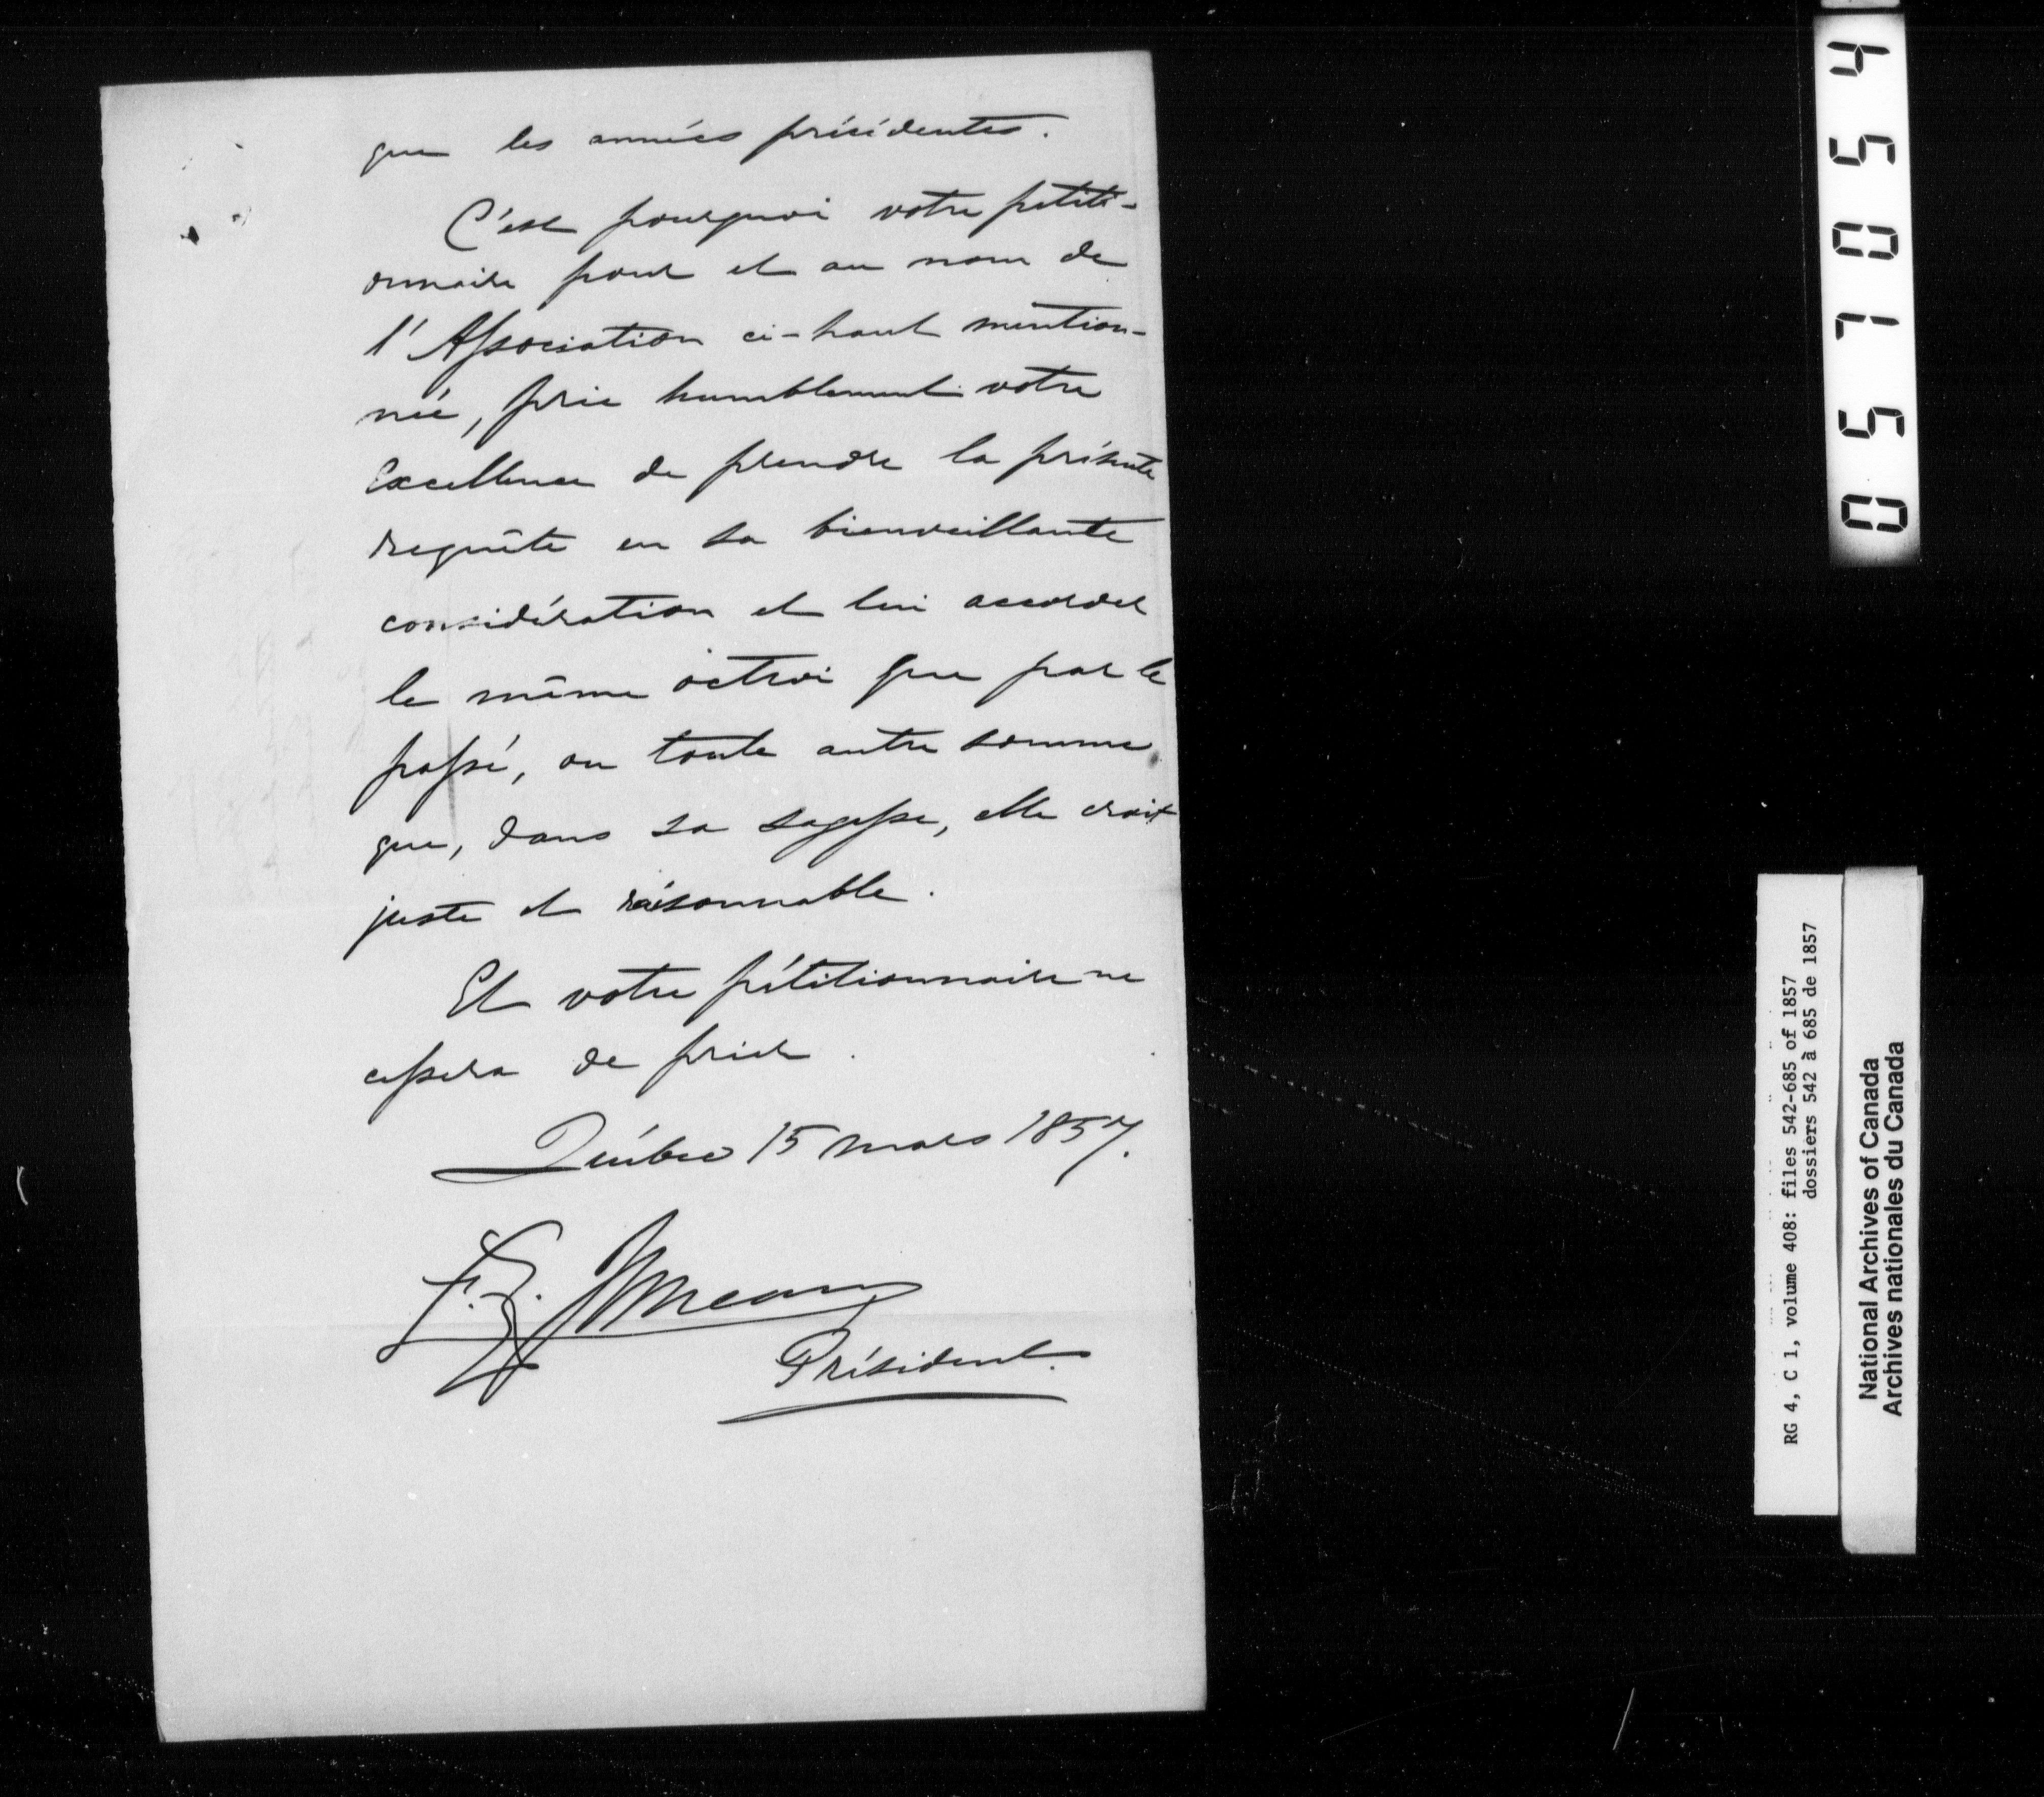 que les années précédentes.
C'est pourquoi votre pétiti-
onnaire pour et au nom de
l'Association ci-haut mention-
née, prie humblement votre
Excellence de prendre la présente
requête en sa bienveillante
considération et lui accorder
le même octroi que par le
passé, ou toute autre somme
que, dans sa sagesse, elle croit
juste et raisonnable.
Et votre pétitionnaire ne
cessera de prier.
Québec 15 mars 1857.
Président.
051054
RG 4, C 1, volume 408: files 542-685 of 1857
dossiers 542 à 685 de 1857
National Archives of Canada
Archives nationales du Canada